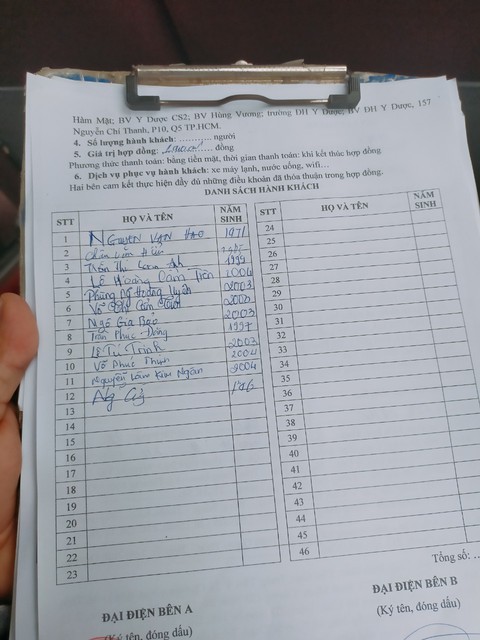 Hàm Mật; BV Y Dược CS2; BV Hùng Vương; trường ĐH Y Dược, BV ĐH Y Dược, 157
Nguyễn Chí Thanh, P10, Q5 TP.HCM.
4. Số lượng hành khách: ........... người
5. Giá trị hợp đồng: ........... đồng
Phương thức thanh toán: bằng tiền mặt, thời gian thanh toán: khi kết thúc hợp đồng
6. Dịch vụ phục vụ hành khách: xe máy lạnh, nước uống, wifi…
Hai bên cam kết thực hiện đầy đủ những điều khoản đã thỏa thuận trong hợp đồng.
DANH SÁCH HÀNH KHÁCH
STT HỌ VÀ TÊN NĂM SINH
1 Nguyễn Văn 1971
2
3 Trần Thị 1999
4 Lê Hoàng Cẩm Tiên 2004
5 Phùng 2003
6 Võ Cẩm 2003
7 Ngô Gia Bảo 2003
8 Trần Phúc Đông 1997
9 Lê Tú Trinh 2003
10 Võ Phúc 2004
11 Nguyễn Lâm Kim Ngân 2004
12
13
14
15
16
17
18
19
20
21
22
23
STT HỌ VÀ TÊN NĂM SINH
24
25
26
27
28
29
30
31
32
33
34
35
36
37
38
39
40
41
42
43
44
45
46
Tổng số: ..
ĐẠI DIỆN BÊN A
(Ký tên, đóng dấu)
ĐẠI DIỆN BÊN B
(Ký tên, đóng dấu)